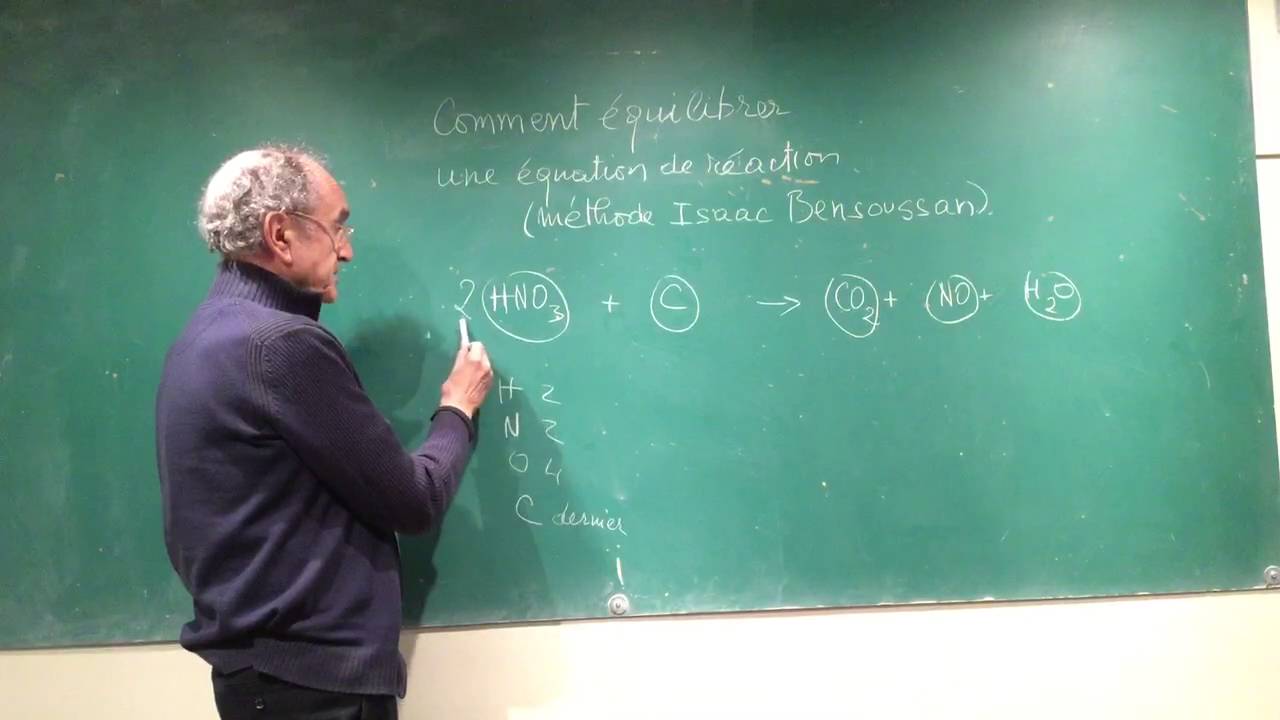 Comment équilibrer
une équation de réaction
(méthode Isaac Bensoussan).
2 HNO3 + C → CO2 + NO + H2O
H 2
N 2
O 4
C dernier
!